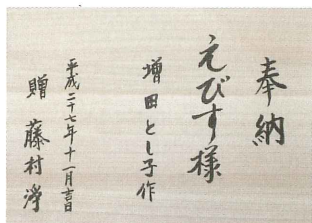 奉納
えびす様
増田とし子作
平成二十七年十一月吉日
贈 藤村淨